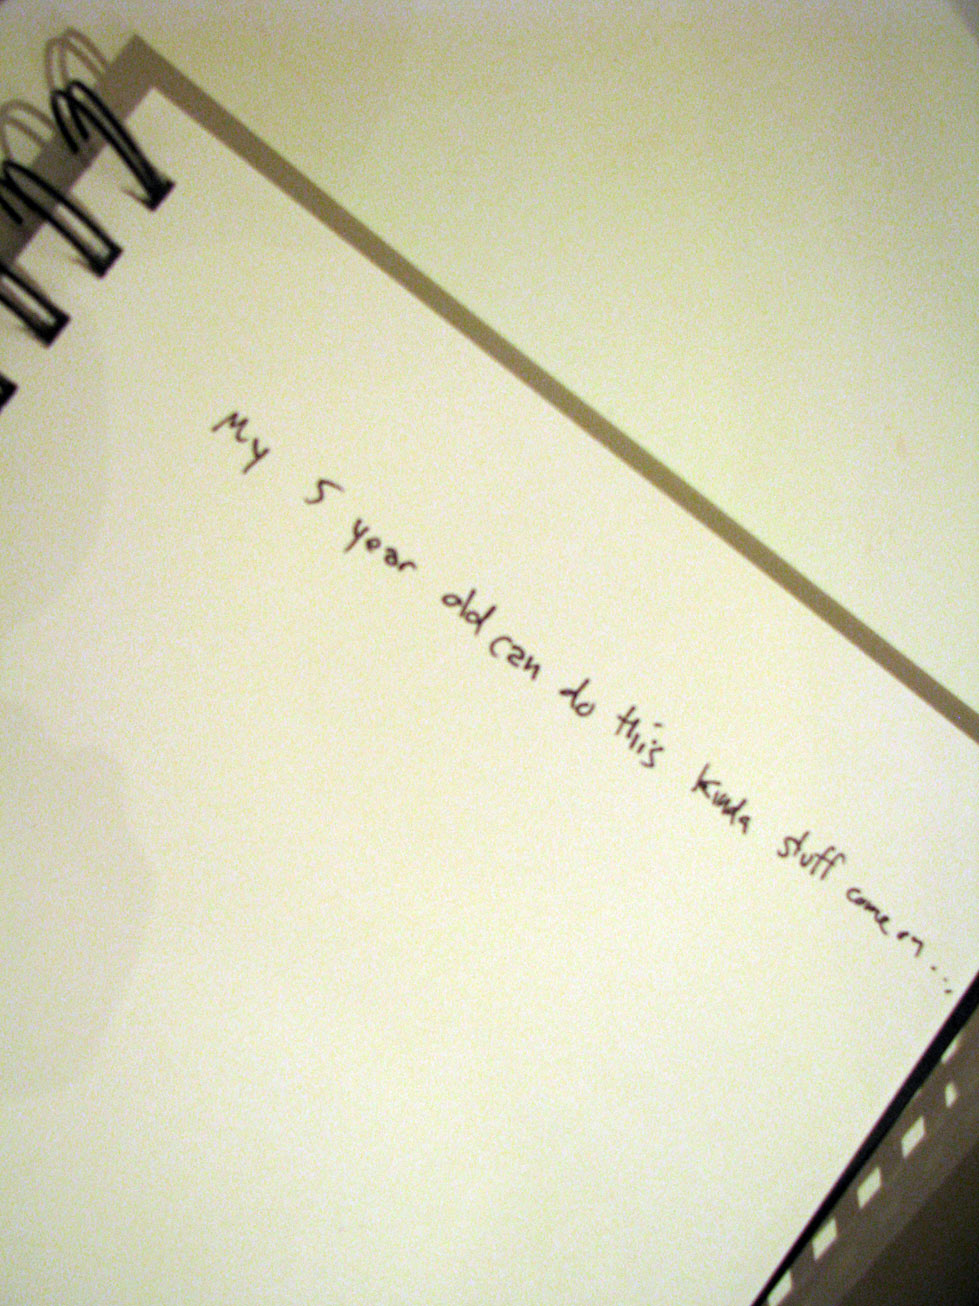 My 5 year old can do this kinda stuff come on...